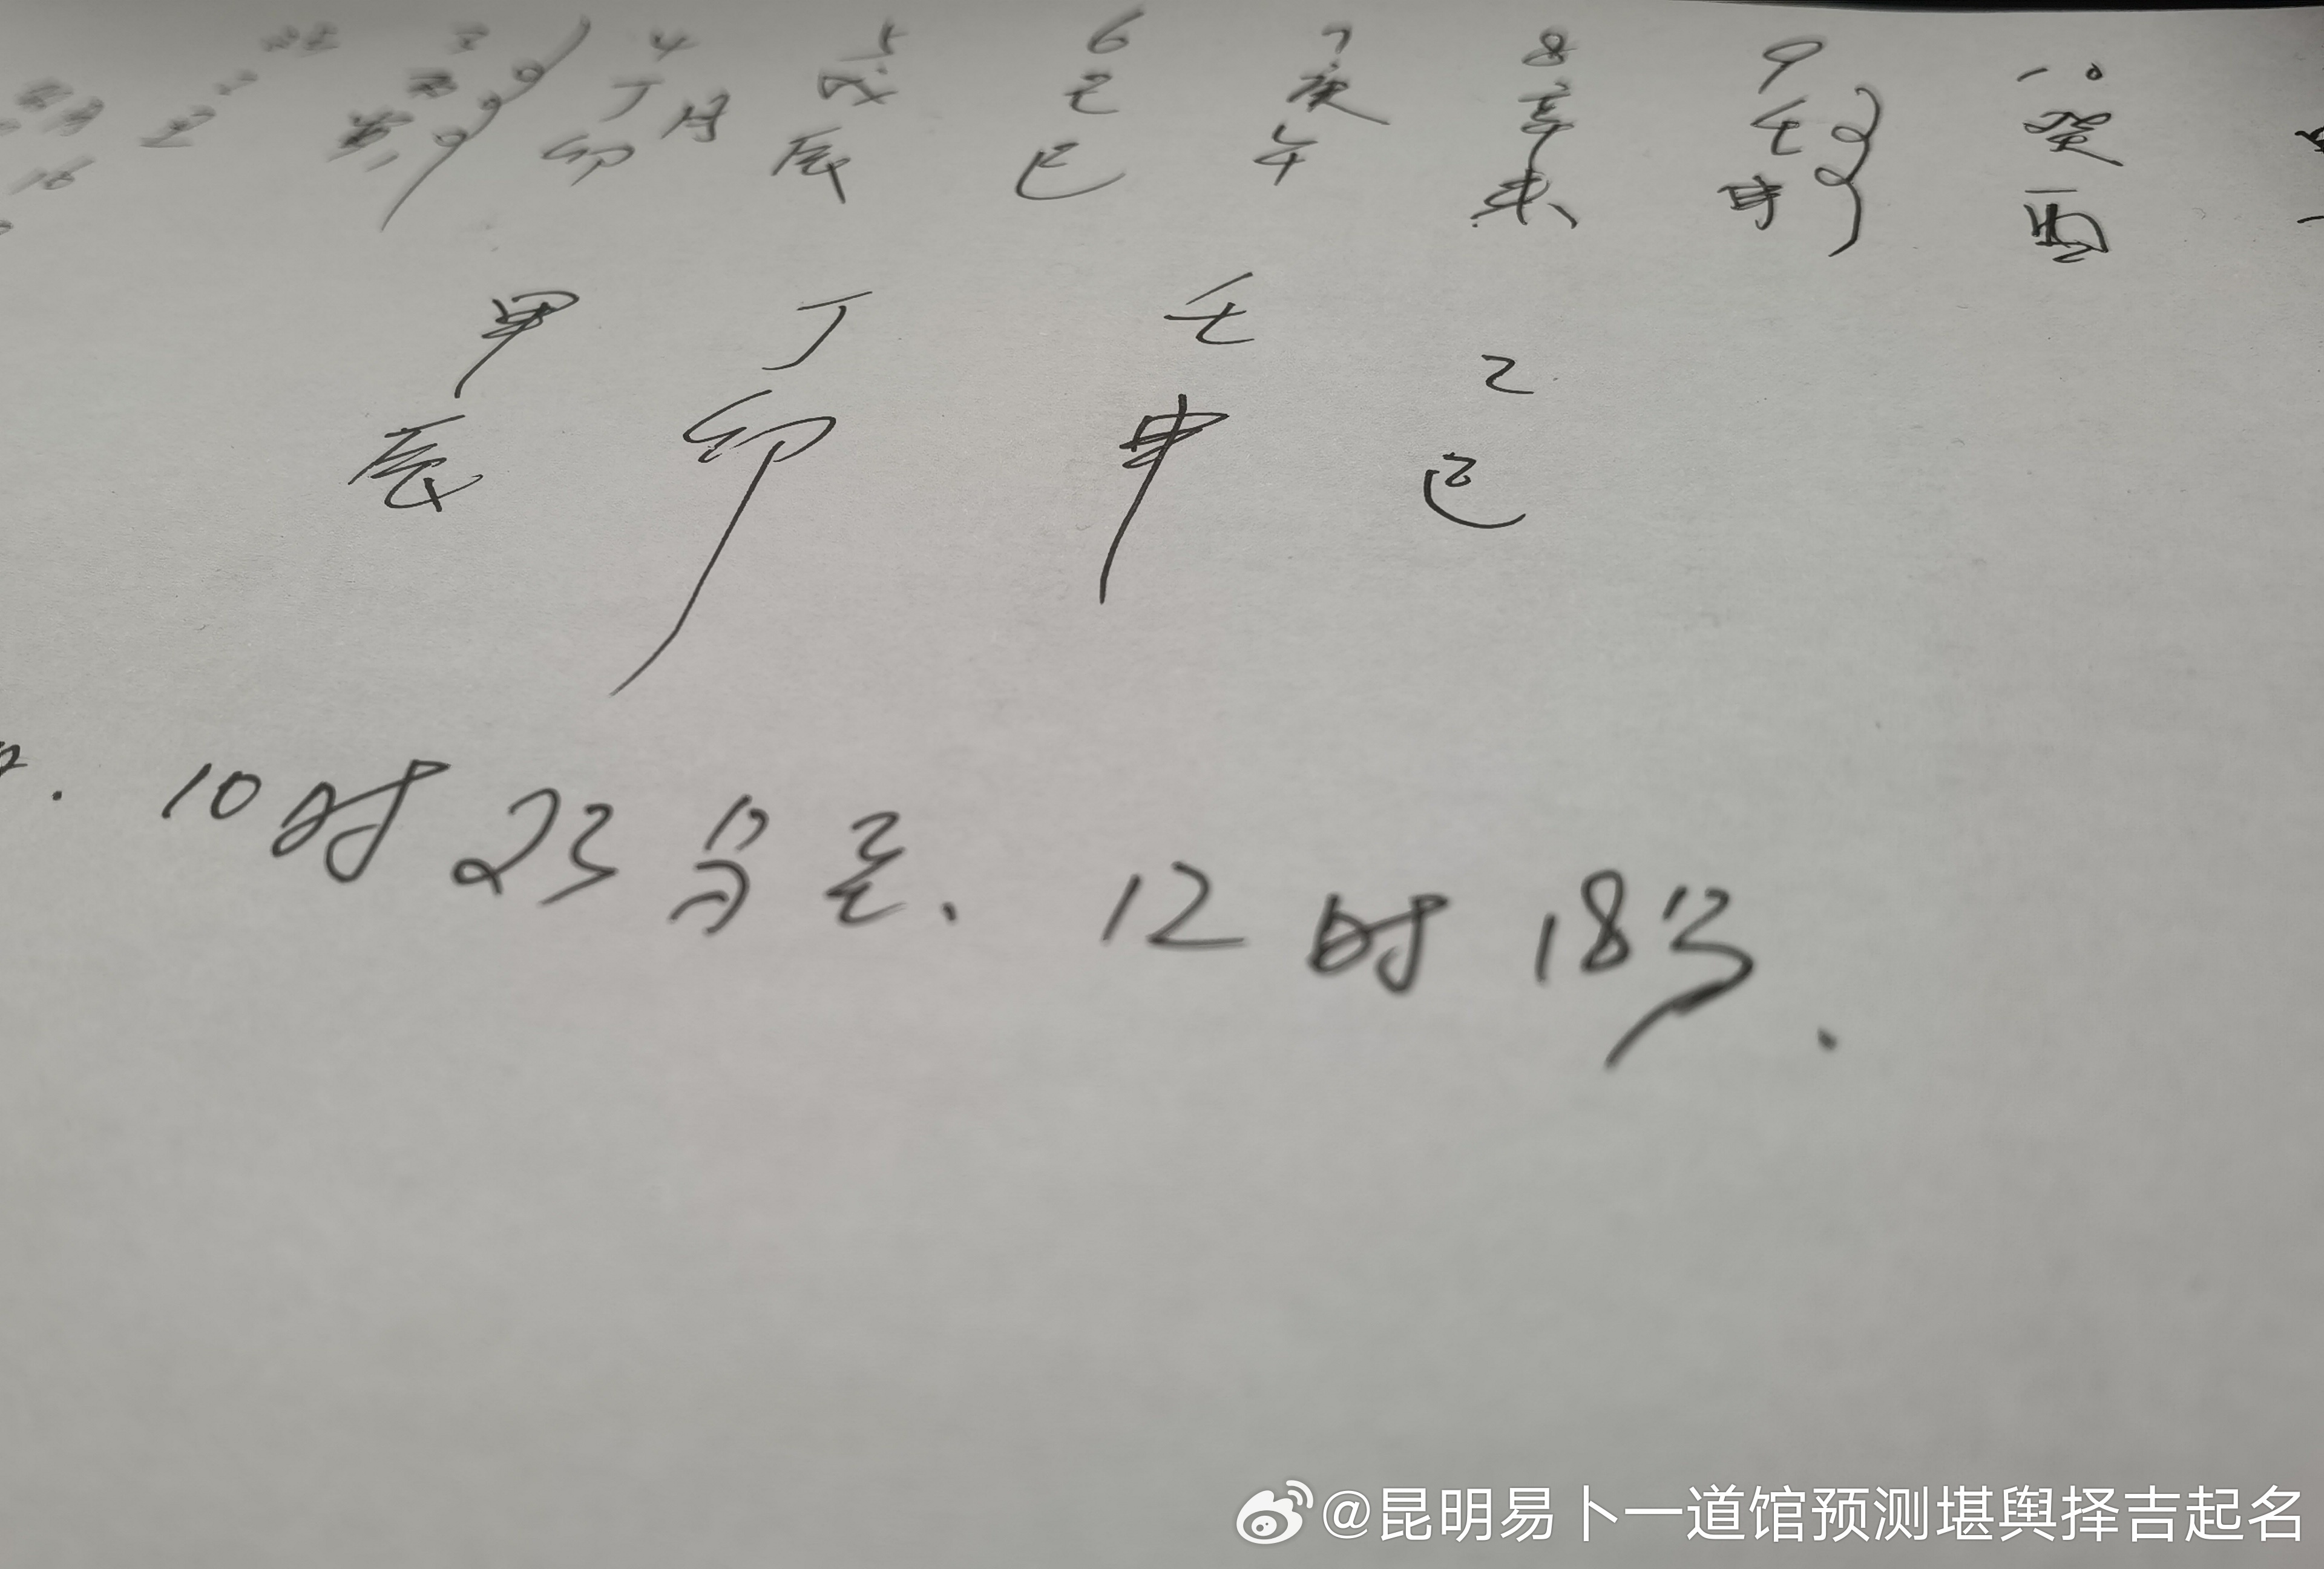 4 5 6 7 8 9 10
丁 月 戊 己 庚 辛 壬 癸
卯 辰 巳 午 未 申 酉
甲 丁 壬 乙
辰 卯 申 巳
10时23分至、12时18分.
@昆明易卜一道馆预测堪舆择吉起名